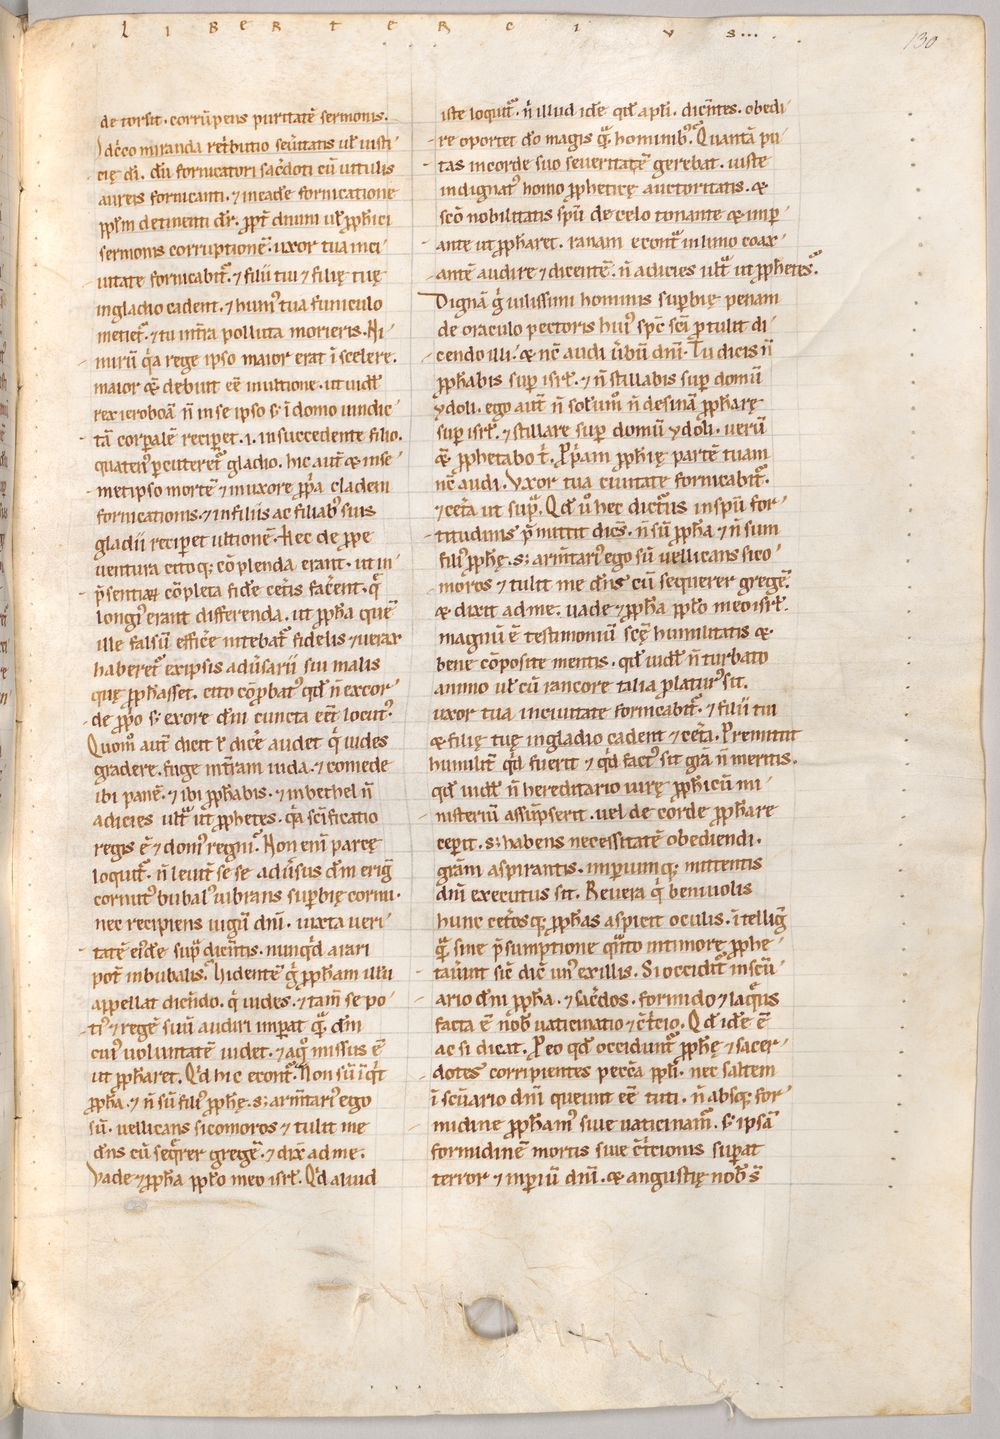 LIBER TERCIVS...
130
de torsit. corrūpens puritatē sermonis.
Idcirco miranda ret̄butio seūitatis ul̓ iusti-
cię dī. dū fornicatori sac̄doti cū uitulis
aureis fornicanti. ⁊ ineadē fornicatione
ppl̄m detinenti dr̄. ꝓpt̄ dnīm ul̓ ꝓph̄ici
sermonis corruptionē. uxor tua inci-
uitate fornicabit̄. ⁊ filii tui ⁊ filię tuę
ingladio cadent. ⁊ hum᷒ tua funiculo
metiet̄. ⁊ tu int̄ra polluta morieris. Ni-
mirū q̄a rege ipso maior erat ī scelere.
maior ⁊ debuit eē inultione. ut uidel̄
rex ieroboā n̄ in se ipso s; ī domo uindic-
tā corꝑalē reciꝑet .i. insuccedente filio.
quaten᷒ ꝑcuteret̄ gladio. hic aut̄ & inse-
metipso mortē ⁊ inuxore ꝓp̄a cladem
fornicationis. ⁊ infiliis ac filiab᷒ suis
gladii reciꝑet ultionē. Hec de ꝓpe
uentura citoq; cōplenda erant. ut in
p̄sentiaꝝ cōpleta fidē cet̄is fac̄ent. q̄
longi᷒ erant differenda. ut ꝓph̄a quē
ille falsū effic̄e nitebat̄ fidelis ⁊ uerax
haberet̄ exipsis adūsarii sui malis
quę ꝓph̄asset. cito cōꝓbat᷒ qd̄ n̄ excor-
de ꝓp̄o s; exore dn̄i cuncta eēt locut᷒.
Quom̊ aut̄ dicit ł dic̄e audet q̄ uides
gradere. fuge int̄ram iuda. ⁊ comede
ibi panē. ⁊ ibi ꝓph̄abis. ⁊ inbethel n̄
adicies ult̄ ut ꝓphetes. q̄a sc̄ificatio
regis ē ⁊ dom᷒ regni. Non eni parcę
loquit̄. n̄ leuit̄ se se adūsus dn̄m eriḡ
cornut᷒ bubal᷒ uibrans suꝑbię cornu.
nec recipiens iugū dn̄i. iuxta ueri-
tatē ei᷒de sup̄ dicentis. nunqd̄ arari
pot̄ inbubalis. Uidentē ḡ ꝓph̄am illū
appellat dicn̄do. q̄ uides. ⁊ tam̄ se po-
ti᷒ ⁊ regē suū audiri imꝑat q̄ dn̄m
cui᷒ uoluntatē uidet. ⁊ aq̊ missus ē
ut ꝓph̄aret. Qd̄ hic econt̄. Non sū īq̄t
ꝓph̄a. ⁊ n̄ sū fili᷒ ꝓph̄ę. s; arm̄tari᷒ ego
sū. uellicans sicomoros ⁊ tulit me
dn̄s cū seq̄rer gregē. ⁊ dix̄ ad me.
Vade ⁊ ꝓph̄a ppl̄o meo isrl̄. Qd̄ aliud
iste loquit̄. n̄ illud idē qd̄ apl̄i. dicn̄tes. obedi-
re oportet dō magis q̄ hominib᷒. Quantā pu-
tas incorde suo seueritatē gerebat. iuste
indignat᷒ homo ꝓpheticę auctoritatis. &
scō nobilitatis spū de celo tonante & imꝑ-
ante ut ꝓph̄aret. ranam econt̄ inlimo coax-
antē audire ⁊ dicentē. n̄ adicies ult̄ ut ꝓphetes.
Dignā ḡ uilissimi hominis suꝑbię penam
de oraculo pectoris hui᷒ spc̄ sc̄i ꝑtulit di-
cendo illi. & nc̄ audi ūbū dn̄i. Tu dicis n̄
ꝓph̄abis suꝑ isrl̄. ⁊ n̄ stillabis suꝑ domū
ydoli. ego aut̄ n̄ solumō n̄ desinā ꝓph̄arę
suꝑ isrl̄. ⁊ stillare suꝑ domū ydoli. uerū
& ꝓphetabo t̄. Ꝓp̄am ꝓph̄ię partē tuam
nc̄ audi. Vxor tua ciuitate fornicabit̄.
⁊ cet̄a ut sup̄. Qd̄ ů hec dictur᷒ inspū for-
titudinis p̄mittit dicēs. n̄ sū ꝓph̄a ⁊ n̄ sum
fili᷒ ꝓph̄ę. s; arm̄tari᷒ ego sū uellicans sico-
moros ⁊ tulit me dn̄s cū sequerer gregē.
& dixit ad me. uade ⁊ ꝓph̄a ppl̄o meo isrl̄.
magnū ē testimoniū scę humilitatis &
bene cōposite mentis. qd̄ uidel̄ n̄ turbato
animo ul̓ cū rancore talia ꝓlatur᷒ sit.
uxor tua inciuitate fornicabit̄. ⁊ filii tui
& filię tuę ingladio cadent ⁊ cet̄a. Premittit
humilit̄ qd̄ fuerit ⁊ qd̄ fact᷒ sit grā n̄ meritis.
qd̄ uidel̄ n̄ hereditario iurę ꝓph̄icū mi-
nisteriū assūpserit. uel de corde ꝓph̄are
ceperit. s; habens necessitatē obediendi.
grām aspirantis. imꝑiumq; mittentis
dn̄i executus sit. Reuera q̄ beniuolis
hunc cet̄osq; ꝓph̄as aspicit oculis. ītelligī
q̄ sine p̄sumptione q̄to intimorę ꝓphe-
tauīnt sic̄ dic̄ un᷒ ex illis. Si occidit̄ inscū-
ario dn̄i ꝓph̄a. ⁊ sac̄dos. formido ⁊ laq̄us
facta ē nob̄ uaticinatio ⁊ c̄t̄cio. Qd̄ idē ē
ac si dicat. P eo qd̄ occidunt̄ ꝓph̄ę ⁊ sacer-
dotes corripientes pecc̄a ppl̄i. nec saltem
ī scūario dn̄i queunt eē tuti. n̄ absq; for-
midine ꝓph̄am᷒ siue uaticinam̄. s; ipsā
formidinē mortis siue c̄t̄cionis suꝑat
terror ⁊ imꝑiū dn̄i. & angustię nob̄ s̄